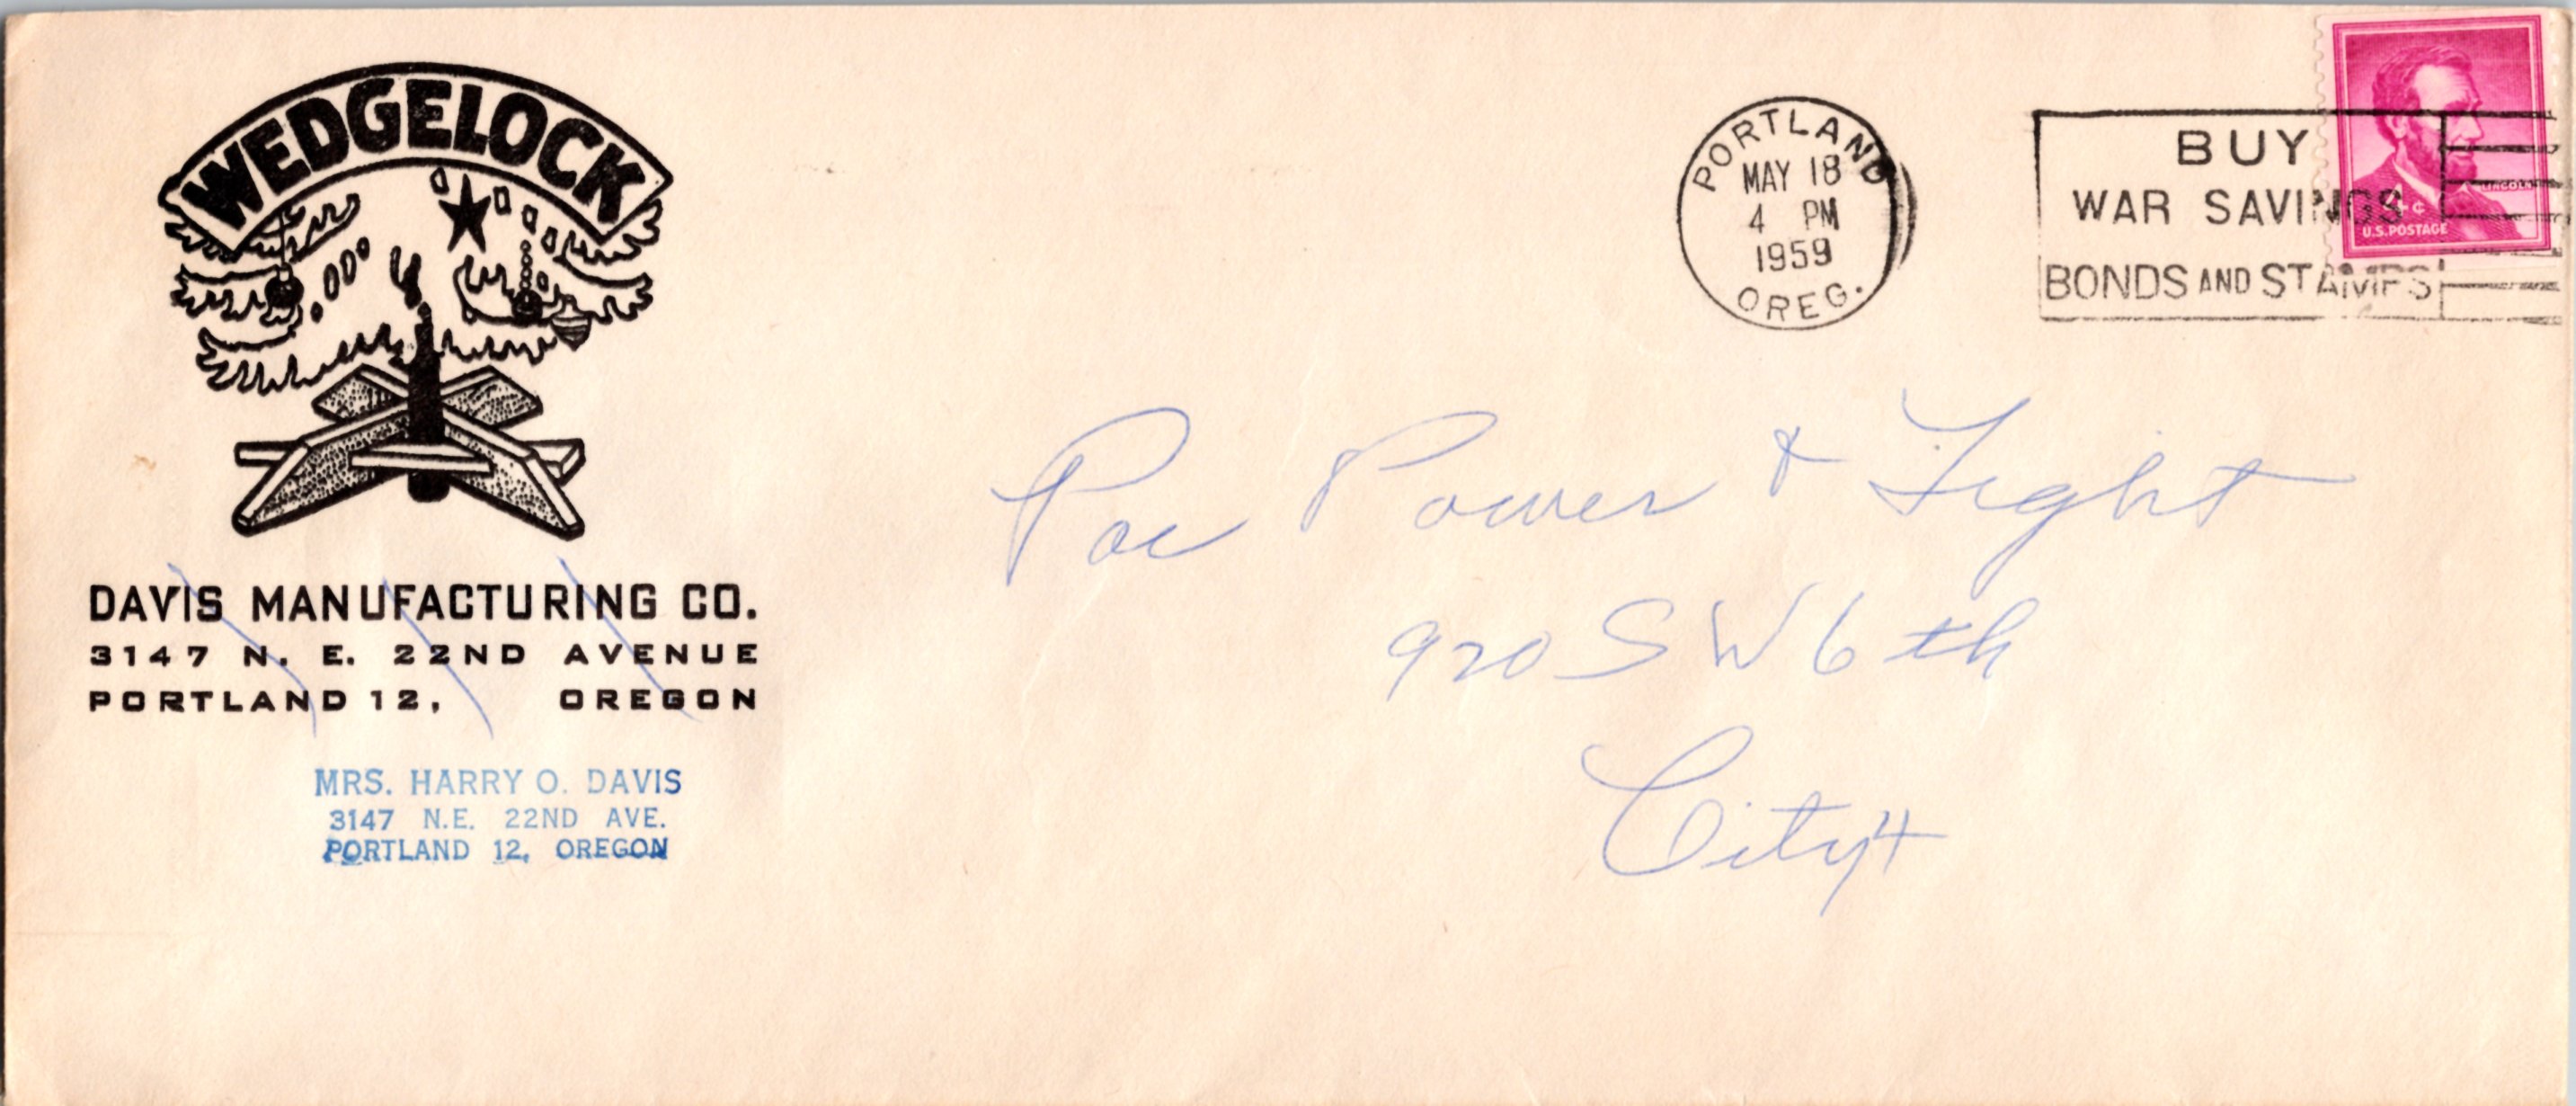 WEDGELOCK
DAVIS MANUFACTURING CO.
3147 N. E. 22ND AVENUE
PORTLAND 12, OREGON
MRS. HARRY O. DAVIS
3147 N.E. 22ND AVE.
PORTLAND 12, OREGON
PORTLAND
MAY 18
4 PM
1959
OREG.
BUY
WAR SAVINGS
BONDS AND STAMPS
LINCOLN
4¢
U.S. POSTAGE
Pac Power & Light
920 SW 6th
City 4